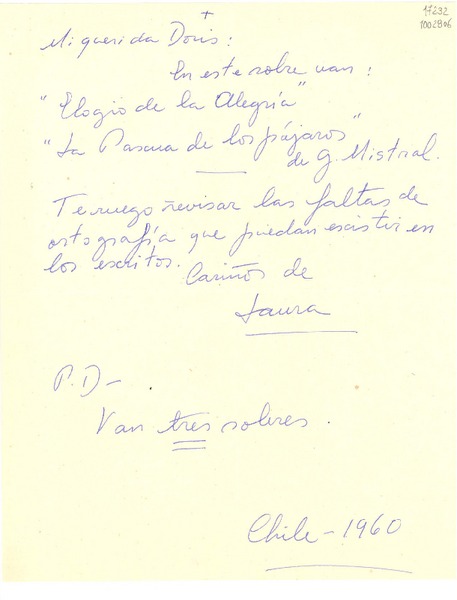 17232
1002806
+
Mi querida Doris:
En este sobre van:
"Elogio de la Alegría"
"La Pascua de los pájaros"
de G. Mistral.
Te ruego revisar las faltas de
ortografía que puedan escistir en
los escritos.
Cariños de
Laura
P.D-
Van tres sobres.
Chile-1960